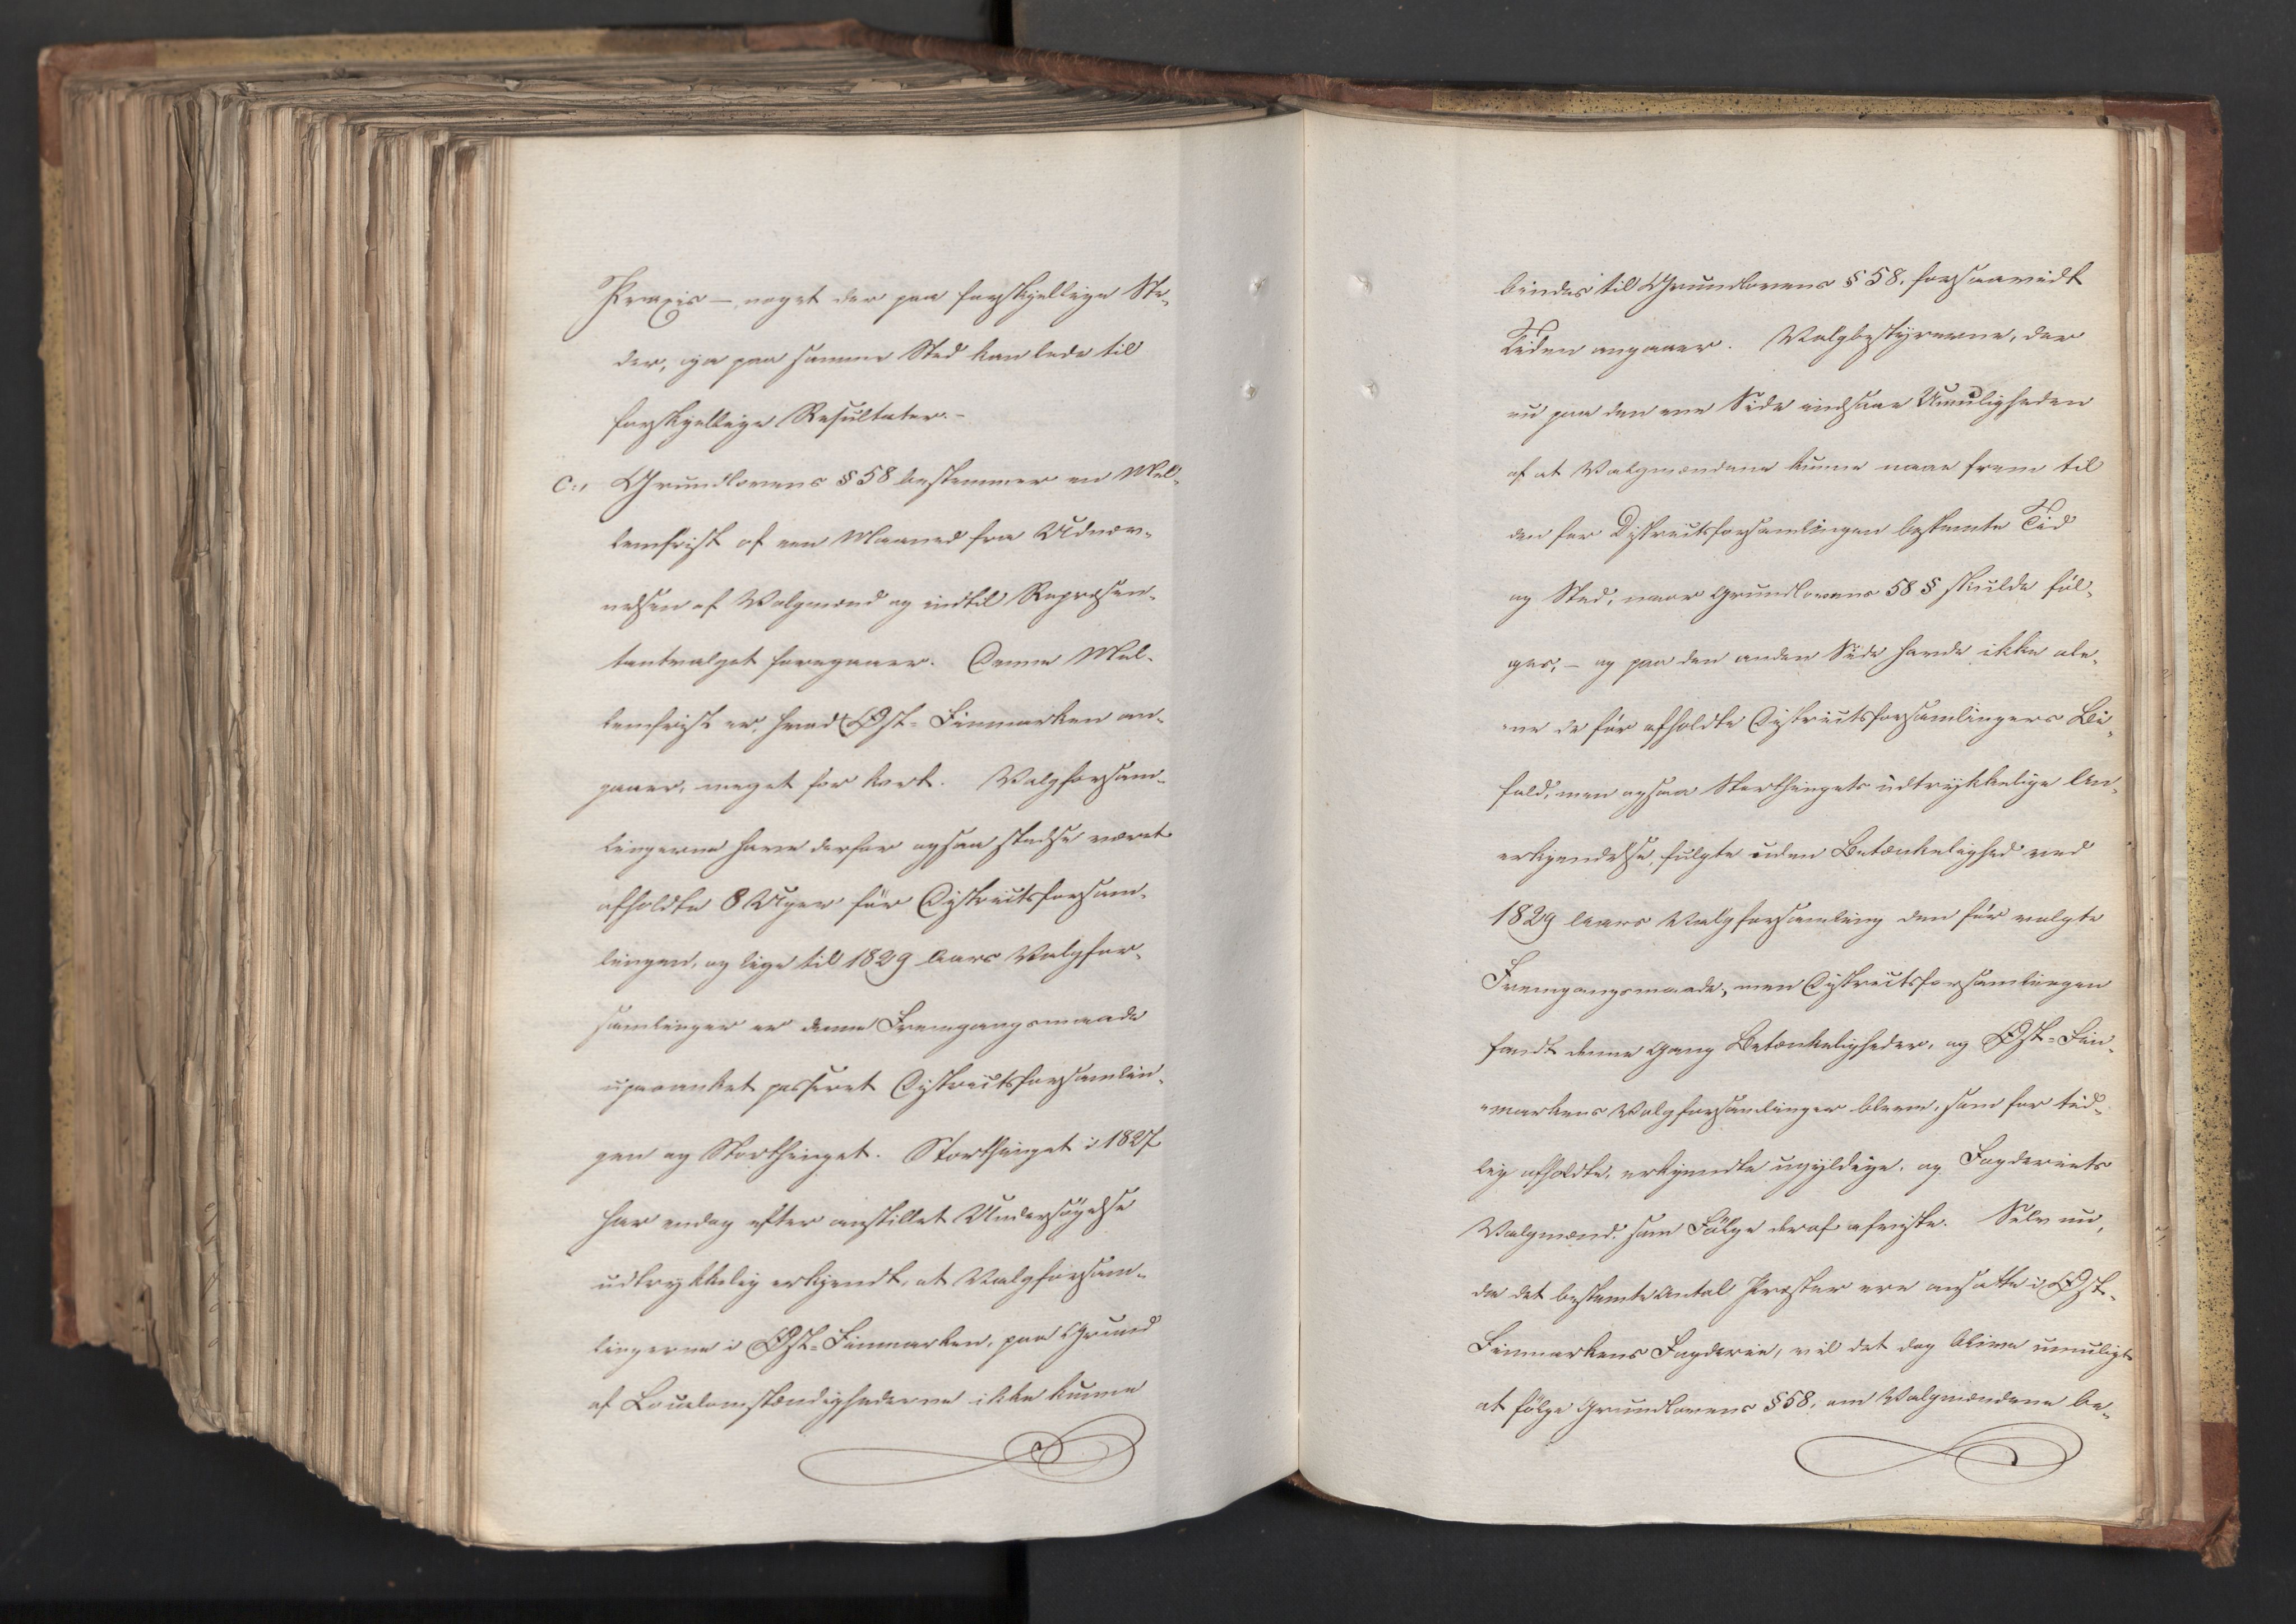 Praxis – noget der paa forskjellige Ste-
der, ja paa samme Sted kan lede til
forskjellige Resultater. –
C., Grundlovens § 58 bestemmer en Mel-
lemfrist af een Maaned fra Udnæv-
nelsen af Valgmænd og indtil Repræsen-
tantvalget foregaaer. Denne Mel-
lemfrist er, hvad Øst-Finmarken an-
gaaer, meget for kort. Valgforsam-
lingerne have derfor ogsaa stedse været
afholdte 8 Uger før Districtsforsam-
lingen, og lige til 1829 Aars Valgfor-
samlinger er denne Fremgangsmaade
upaaanket passeret Districtsforsamlin-
gen og Storthinget. Storthinget i 1827
har endog efter anstillet Undersøgelse
udtrykkelig erkjendt, at Valgforsam-
lingerne i Øst-Finmarken, paa Grund
af Localomstændighederne ikke kunne
bindes til Grundlovens § 58. forsaavidt
Tiden angaaer. Valgbestyrerne, der
nu paa den ene Side indsaae Umuligheden
af at Valgmændene kunne naae frem til
den for Districtsforsamlingen bestemte Tid
og Sted, naar Grundlovens 58 § skulde føl-
ges, – og paa den anden Side havde ikke ale-
ne de før afholdte Districtsforsamlingers Bi-
fald, men ogsaa Storthingets udtrykkelige An-
erkjendelse, fulgte uden Betænkelighed ved
1829 Aars Valgforsamling den før valgte
Fremgangsmaade, men Districtsforsamlingen
fandt denne Gang Betænkeligheder, og Øst-Fin-
markens Valgforsamlinger bleve, som for tid-
lig afholdte, erkjendte ugyldige, og Fogderiets
Valgmænd som Følge deraf afviste. Selv nu,
da det bestemte Antal Præster ere ansatte i Øst-
Finmarkens Fogderie, vil det dog blive umuligt
at følge Grundlovens § 58, om Valgmændene be-